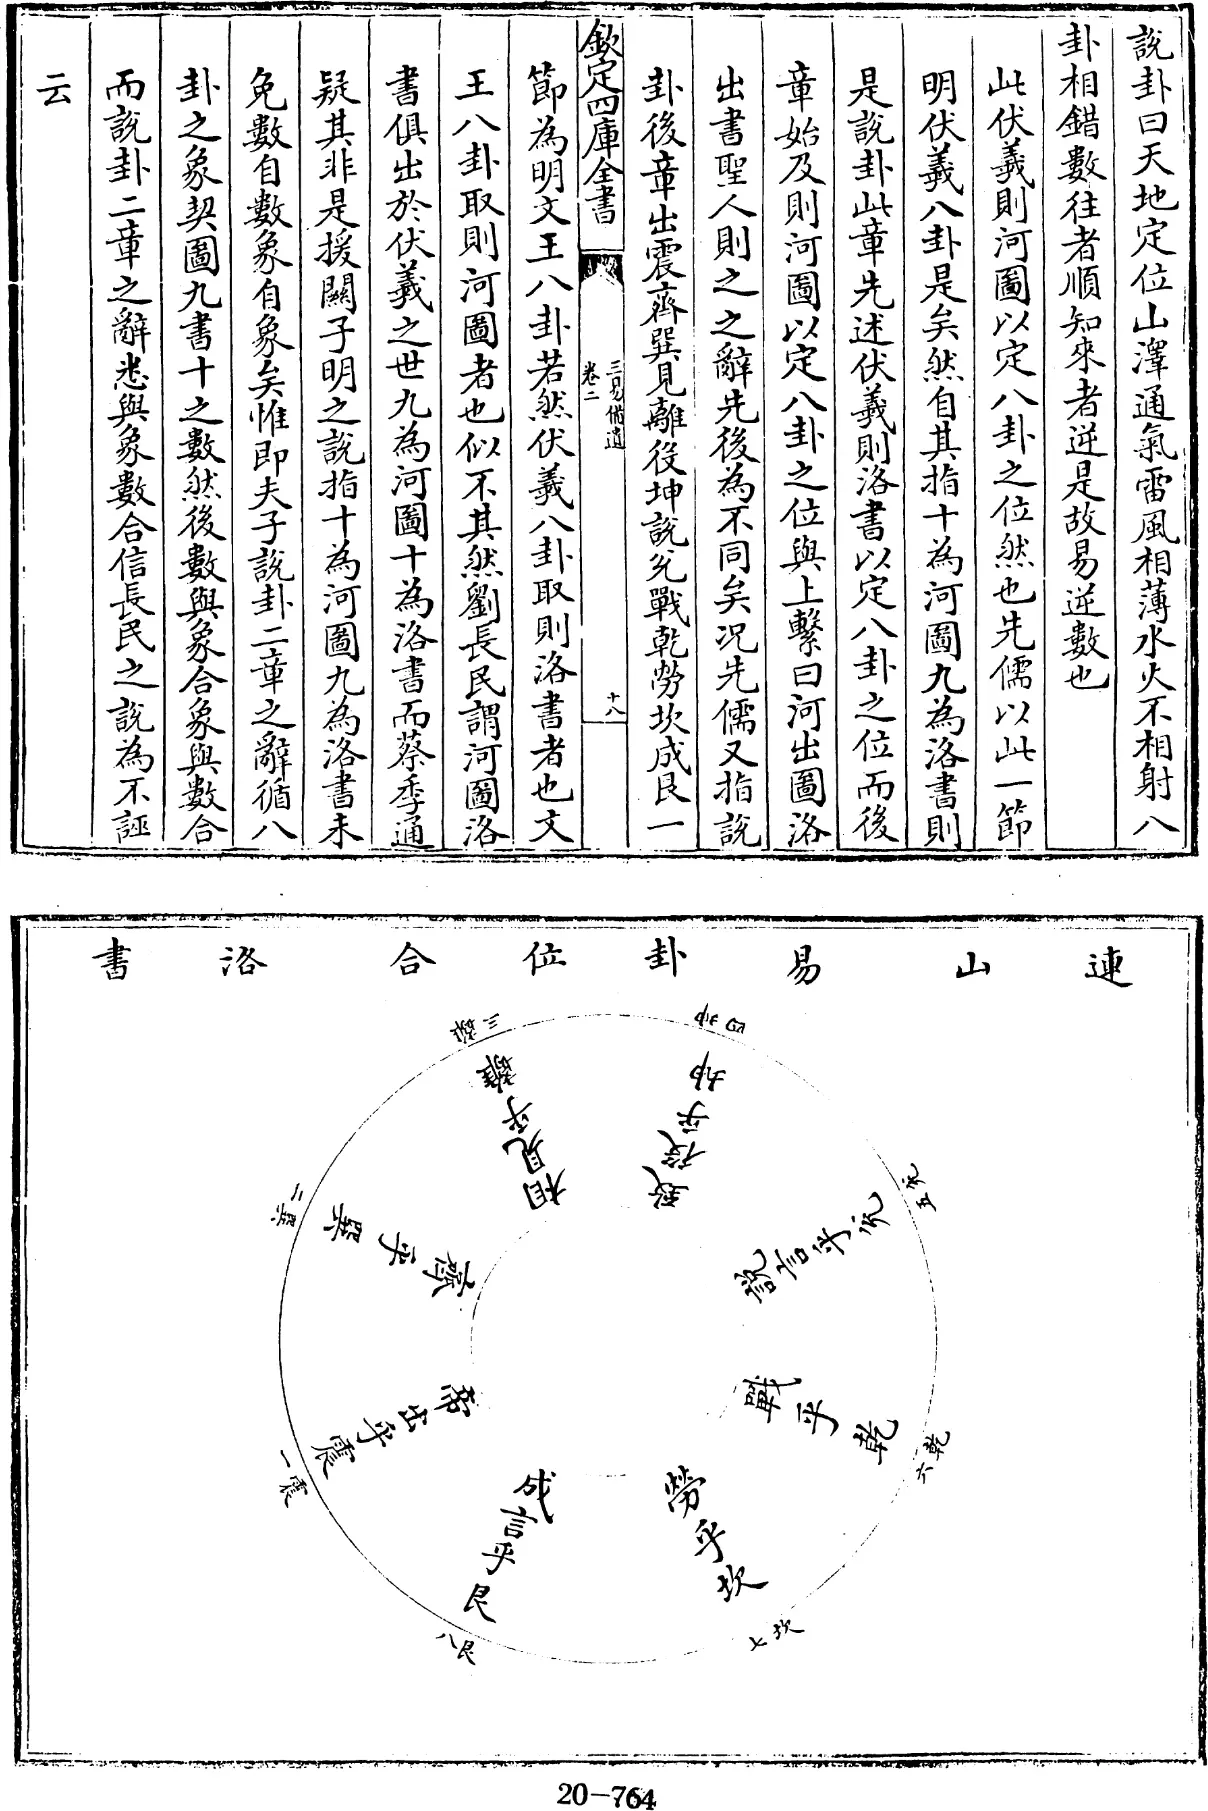 說卦曰天地定位山澤通氣雷風相薄水火不相射八
卦相錯數往者順知來者逆是故易逆數也
此伏羲則河圖以定八卦之位然也先儒以此一節
明伏羲八卦是矣然自其指十為河圖九為洛書則
是說卦此章先述伏羲則洛書以定八卦之位而後
章始及則河圖以定八卦之位與上繫曰河出圖洛
出書聖人則之之辭先後為不同矣况先儒又指說
卦後章出震齊巽見離役坤說兊戰乾勞坎成艮一
欽定四庫全書
三易備遺
卷二
十八
節為明文王八卦若然伏羲八卦取則洛書者也文
王八卦取則河圖者也似不其然劉長民謂河圖洛
書俱出於伏羲之世九為河圖十為洛書而蔡季通
疑其非是援關子明之說指十為河圖九為洛書未
免數自數象自象矣惟即夫子說卦二章之辭循八
卦之象契圖九書十之數然後數與象合象與數合
而說卦二章之辭悉與象數合信長民之說為不誣
云
連山易卦位合洛書
四坤
致役乎坤
五兊
說言乎兊
六乾
戰乎乾
七坎
勞乎坎
八艮
成言乎艮
一震
帝出乎震
二巽
齊乎巽
三離
相見乎離
20-764